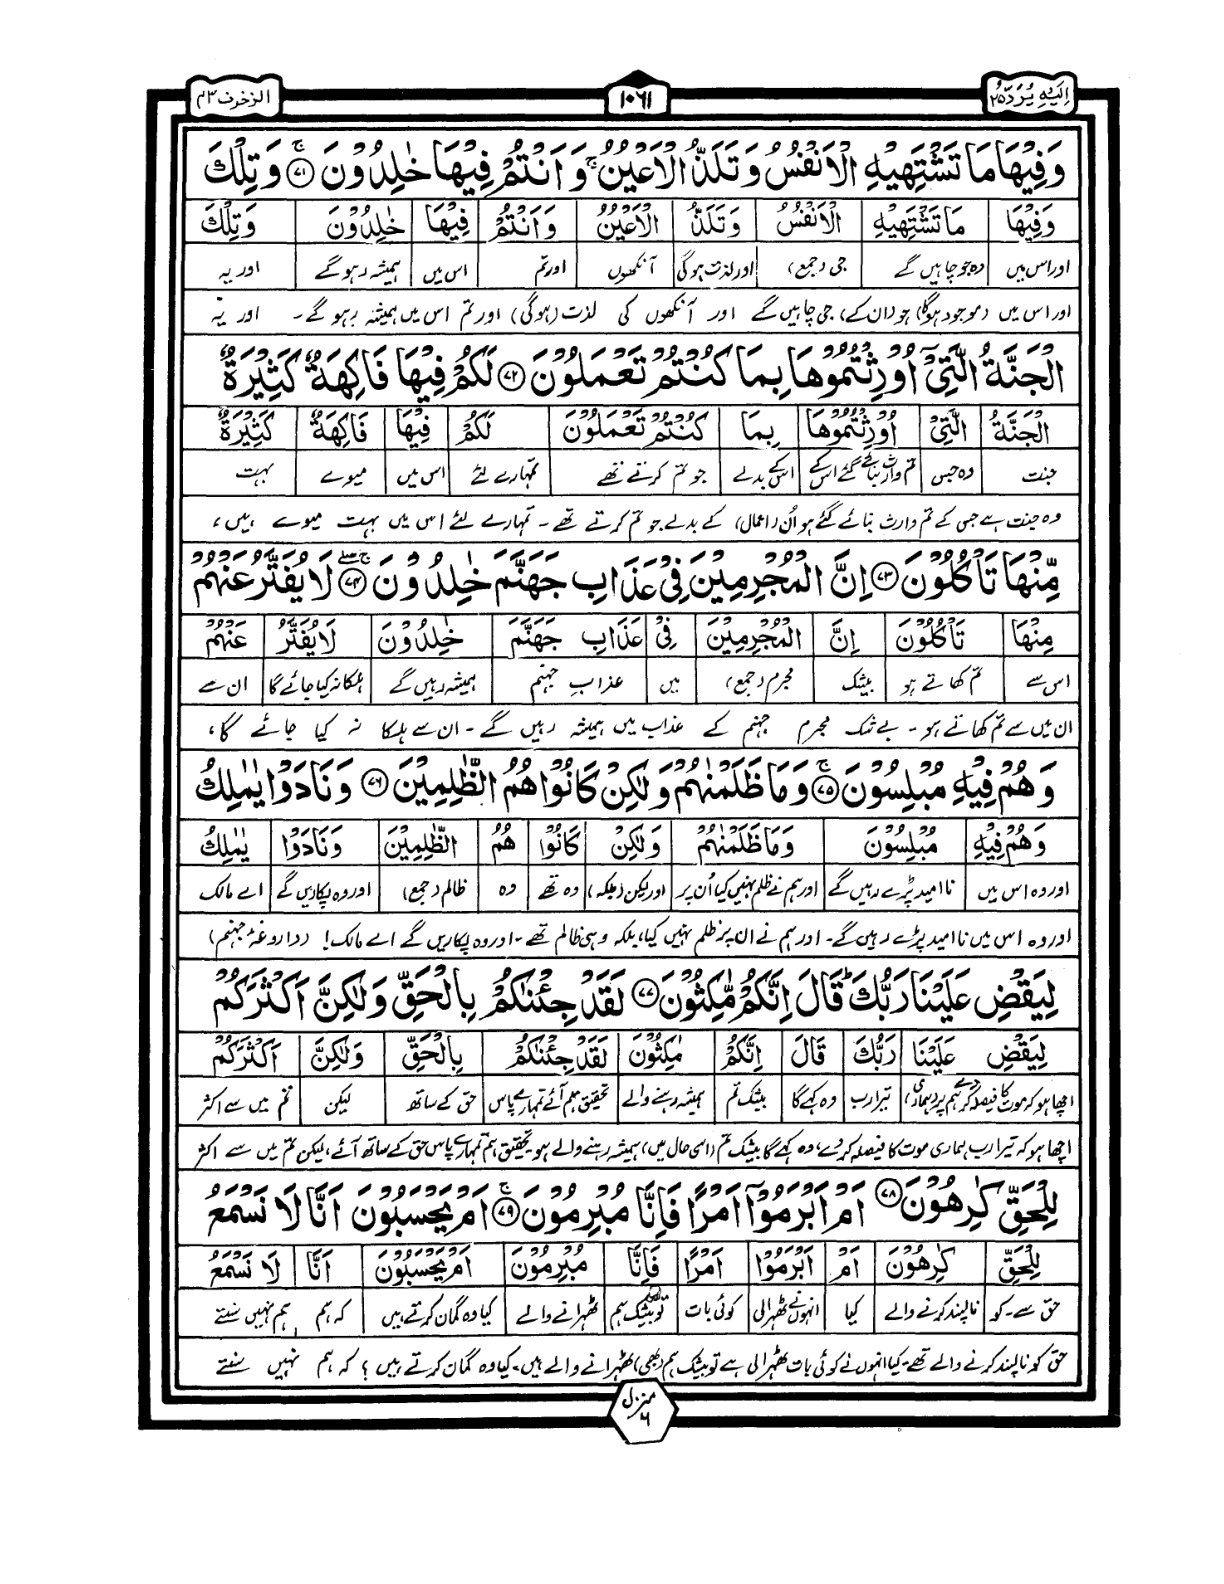 اِلَيْهِ يُرَدُّ ٢٥
١٠٦١
الزخرف ٤٣
وَفِيْهَا مَا تَشْتَهِيْهِ الْاَنْفُسُ وَتَلَذُّ الْاَعْيُنُ ۚ وَاَنْتُمْ فِيْهَا خٰلِدُوْنَ ۚ ﴿٧١﴾ وَتِلْكَ
وَفِيْهَا مَا تَشْتَهِيْهِ الْاَنْفُسُ وَتَلَذُّ الْاَعْيُنُ وَاَنْتُمْ فِيْهَا خٰلِدُوْنَ وَتِلْكَ
اور اس میں وہ جو چاہیں گے جی (جمع) اور لذت ہوگی آنکھوں اور تم اس میں ہمیشہ رہوگے اور یہ
اور اس میں (موجود ہوگا) جو (ان کے) جی چاہیں گے اور آنکھوں کی لذت (ہوگی) اور تم اس میں ہمیشہ رہو گے۔ اور یہ
الْجَنَّةُ الَّتِيْٓ اُوْرِثْتُمُوْهَا بِمَا كُنْتُمْ تَعْمَلُوْنَ ﴿٧٢﴾ لَكُمْ فِيْهَا فَاكِهَةٌ كَثِيْرَةٌ
الْجَنَّةُ الَّتِيْٓ اُوْرِثْتُمُوْهَا بِمَا كُنْتُمْ تَعْمَلُوْنَ لَكُمْ فِيْهَا فَاكِهَةٌ كَثِيْرَةٌ
جنت وہ جس تم وارث بنائے گئے اس کے اسکے بدلے جو تم کرتے تھے تمہارے لئے اس میں میوے بہت
وہ جنت ہے جس کے تم وارث بنائے گئے ہو اُن (اعمال) کے بدلے جو تم کرتے تھے۔ تمہارے لئے اس میں بہت میوے ہیں،
مِّنْهَا تَاْكُلُوْنَ ﴿٧٣﴾ اِنَّ الْمُجْرِمِيْنَ فِيْ عَذَابِ جَهَنَّمَ خٰلِدُوْنَ ﴿٧٤﴾ لَا يُفَتَّرُ عَنْهُمْ
مِّنْهَا تَاْكُلُوْنَ اِنَّ الْمُجْرِمِيْنَ فِيْ عَذَابِ جَهَنَّمَ خٰلِدُوْنَ لَا يُفَتَّرُ عَنْهُمْ
اس سے تم کھاتے ہو بیشک مجرم (جمع) میں عذابِ جہنم ہمیشہ رہیں گے ہلکا نہ کیا جائے گا ان سے
ان میں سے تم کھاتے ہو۔ بے شک مجرم جہنم کے عذاب میں ہمیشہ رہیں گے۔ ان سے ہلکا نہ کیا جائے گا،
وَهُمْ فِيْهِ مُبْلِسُوْنَ ۚ ﴿٧٥﴾ وَمَا ظَلَمْنٰهُمْ وَلٰكِنْ كَانُوْا هُمُ الظّٰلِمِيْنَ ﴿٧٦﴾ وَنَادَوْا يٰمٰلِكُ
وَهُمْ فِيْهِ مُبْلِسُوْنَ وَمَا ظَلَمْنٰهُمْ وَلٰكِنْ كَانُوْا هُمُ الظّٰلِمِيْنَ وَنَادَوْا يٰمٰلِكُ
اور وہ اس میں ناامید پڑے رہیں گے اور ہم نے ظلم نہیں کیا اُن پر اور لیکن (بلکہ) وہ تھے وہ ظالم (جمع) اور وہ پکاریں گے اے مالک
اور وہ اس میں ناامید پڑے رہیں گے۔ اور ہم نے ان پر ظلم نہیں کیا، بلکہ وہی ظالم تھے۔ اور وہ پکاریں گے اے مالک! (داروغۂ جہنم)
لِيَقْضِ عَلَيْنَا رَبُّكَ ۭ قَالَ اِنَّكُمْ مّٰكِثُوْنَ ﴿٧٧﴾ لَقَدْ جِئْنٰكُمْ بِالْحَقِّ وَلٰكِنَّ اَكْثَرَكُمْ
لِيَقْضِ عَلَيْنَا رَبُّكَ قَالَ اِنَّكُمْ مّٰكِثُوْنَ لَقَدْ جِئْنٰكُمْ بِالْحَقِّ وَلٰكِنَّ اَكْثَرَكُمْ
اچھا ہو کہ موت کا فیصلہ کر دے ہم پر (ہماری) تیرا رب وہ کہے گا بیشک تم ہمیشہ رہنے والے تحقیق ہم آئے تمہارے پاس حق کے ساتھ لیکن تم میں سے اکثر
اچھا ہو کہ تیرا رب ہماری موت کا فیصلہ کر دے، وہ کہے گا بیشک تم (اسی حال میں) ہمیشہ رہنے والے ہو، تحقیق ہم تمہارے پاس حق کے ساتھ آئے، لیکن تم میں سے اکثر
لِلْحَقِّ كٰرِهُوْنَ ﴿٧٨﴾ اَمْ اَبْرَمُوْٓا اَمْرًا فَاِنَّا مُبْرِمُوْنَ ۚ ﴿٧٩﴾ اَمْ يَحْسَبُوْنَ اَنَّا لَا نَسْمَعُ
لِلْحَقِّ كٰرِهُوْنَ اَمْ اَبْرَمُوْٓا اَمْرًا فَاِنَّا مُبْرِمُوْنَ اَمْ يَحْسَبُوْنَ اَنَّا لَا نَسْمَعُ
حق سے۔ کو ناپسند کرنے والے کیا انہوں نے ٹھہرالی کوئی بات تو بیشک ہم ٹھہرانے والے کیا وہ گمان کرتے ہیں کہ ہم ہم نہیں سنتے
حق کو ناپسند کرنے والے تھے۔ کیا انہوں نے کوئی بات ٹھہرالی ہے تو بیشک ہم (بھی) ٹھہرانے والے ہیں۔ کیا وہ گمان کرتے ہیں؟ کہ ہم نہیں سنتے
منزل ٦